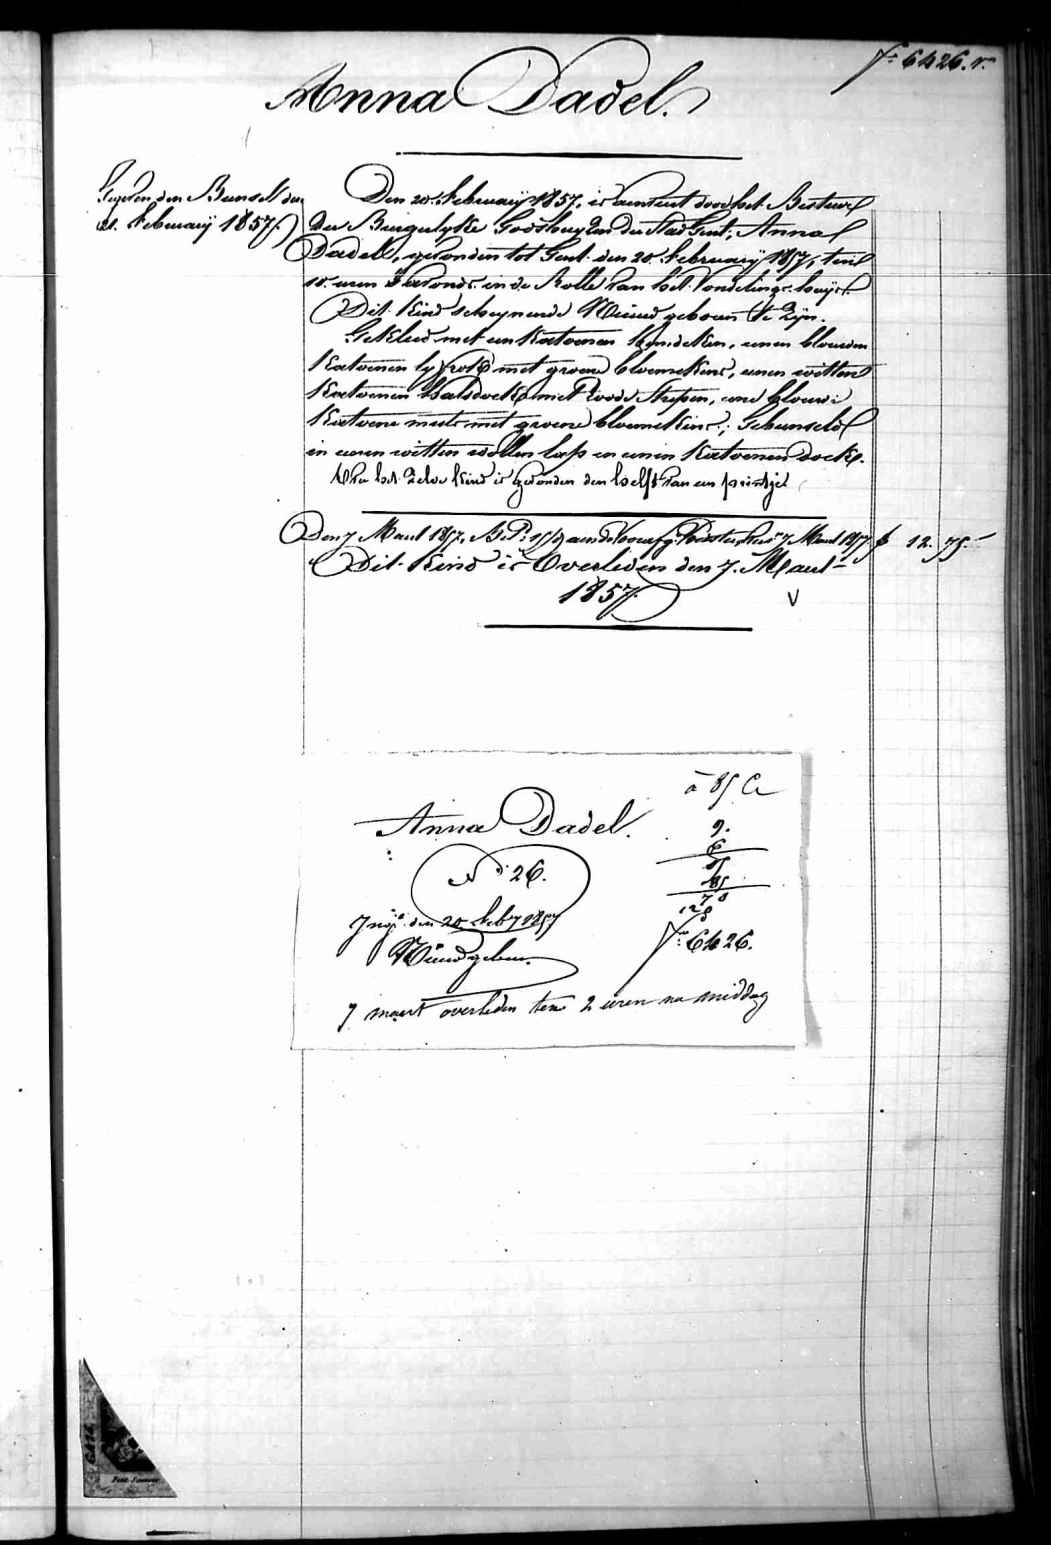 f° 6426. r.
Anna Dadel.
den Bundel den
21. February 1857.
Den 20. February 1857, is aenveird door het Bestuer
der Burgerlyke Godshuyzen der Stad Gent, Anna
Dadel, gevonden tot Gent den 20. February 1857, ten
10. uren 's avonds in de Rolle van het Vondelings huys.
Dit Kind scheynende Nieuw geboren te Zyn.
Gekleed met een Katoenen Hemdeken, eenen blouwen
Katoenen lyfrok met groene bloemekens, eenen witten
Katoenen halsdoek met Roode strepen, eene blouwe
Katoene muts met groene bloemekens; Gebunseld
in eenen witten wollen lap en eenen Katoenen doek.
het Zelve Kind is gevonden den helft van een printje
Den 7 Maert 1857, 7 Maert 1857 f 12. 75.
Dit Kind is Overleden den 7. Maert
1857.
à 85 C
Anna Dadel.
9.
6
N° 26.
85
den 20 Feb 1857
f° 6426.
Nieuwgeboren.
7 maert overleden ten 2 uren na middag
6426